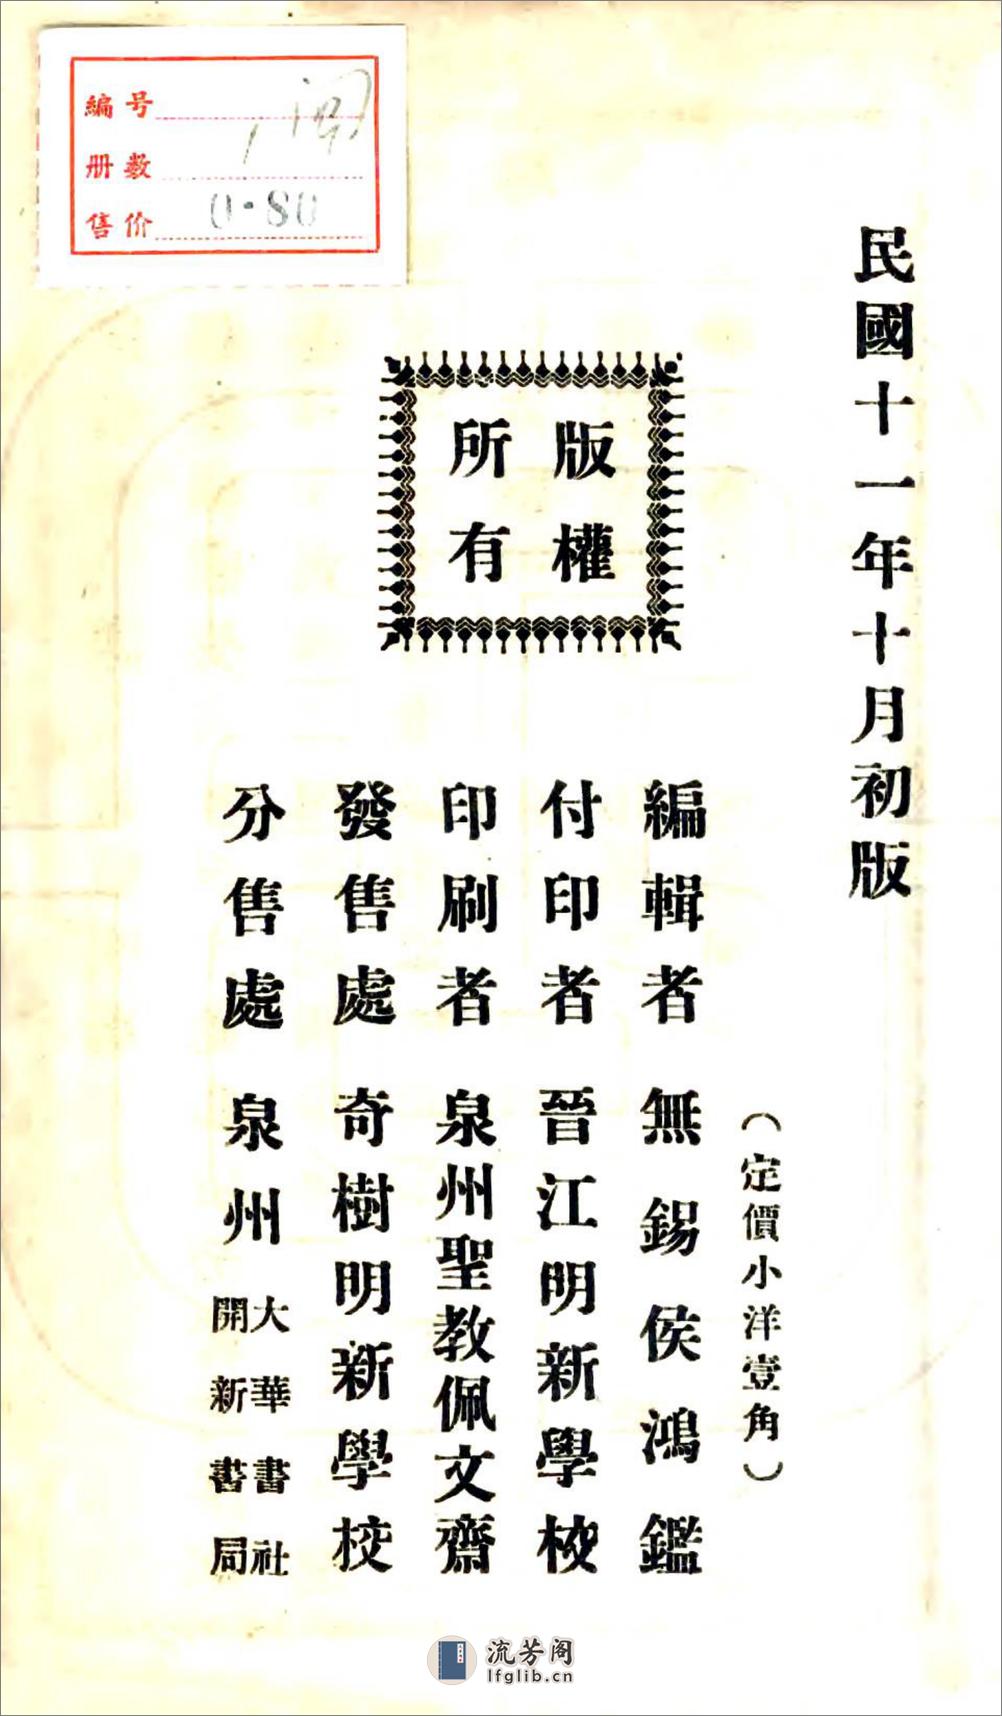 民國十一年十月初版
版權
所有
(定價小洋壹角)
編輯者 無錫侯鴻鑑
付印者 晉江明新學校
印刷者 泉州聖教佩文齋
發售處 奇樹明新學校
分售處 泉州 大華書社
開新書局
編号
册数
售价 0.80
流芳阁
lfglib.cn